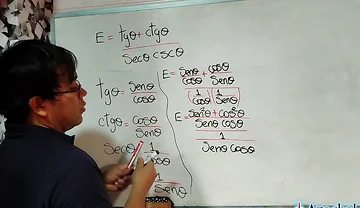 E = tgθ + ctgθ
Secθ cscθ
tgθ = Senθ
Cosθ
ctgθ = Cosθ
Senθ
Secθ 1
Cosθ
1
Senθ
E = Senθ + Cosθ
Cosθ Senθ
(1 (1
Cosθ) Senθ)
E = Sen²θ + Cos²θ
Senθ Cosθ
1
Senθ Cosθ